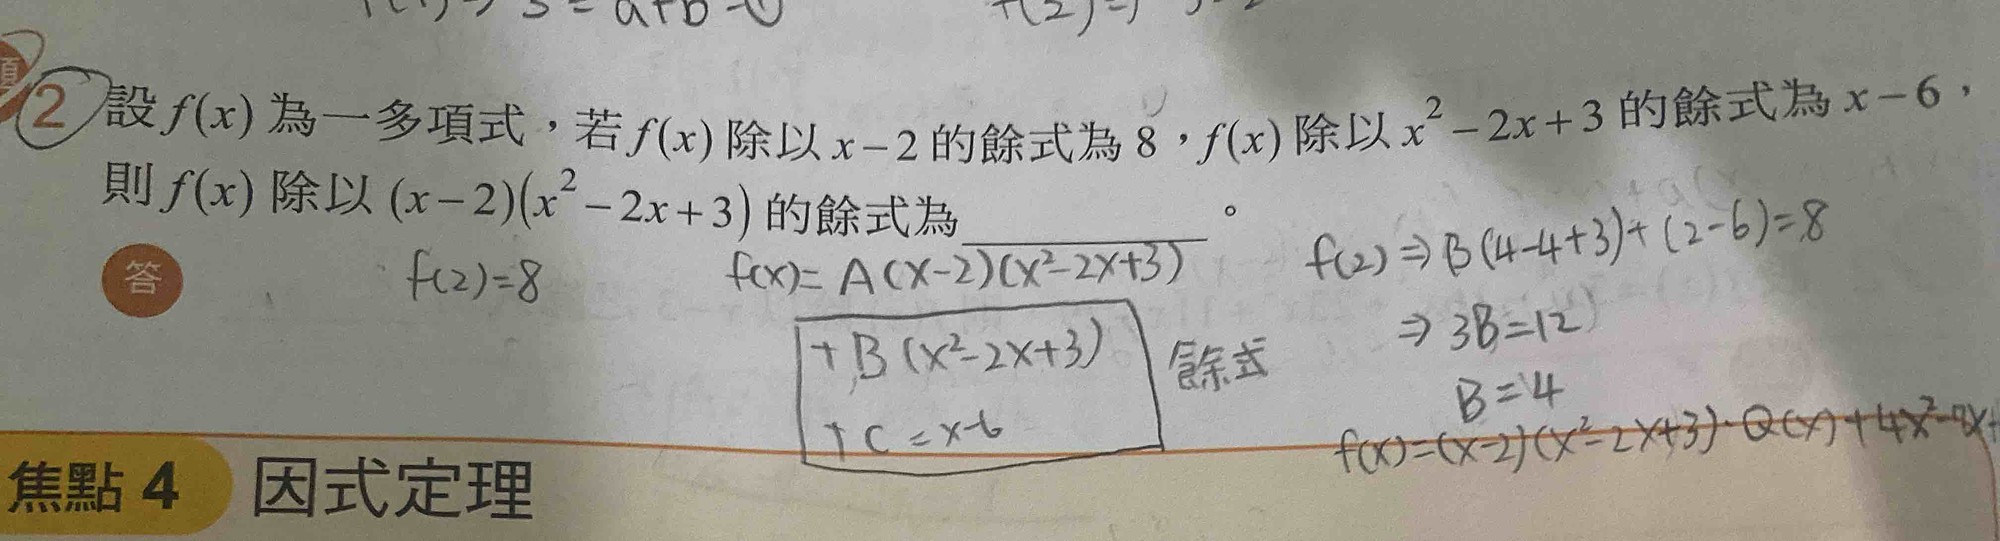 3 = a+b
f(2) ⇒
2 設 f(x) 為一多項式，若 f(x) 除以 x−2 的餘式為 8，f(x) 除以 x²−2x+3 的餘式為 x−6，
則 f(x) 除以 (x−2)(x²−2x+3) 的餘式為＿＿＿＿。
答
f(2)=8
f(x)= A(x-2)(x²-2x+3)
+B(x²-2x+3)
+C = x-6
餘式
f(2) ⇒ B(4-4+3)+(2-6)=8
⇒ 3B=12
B=4
f(x)=(x-2)(x²-2x+3)·Q(x)+4x²-
焦點 4 因式定理